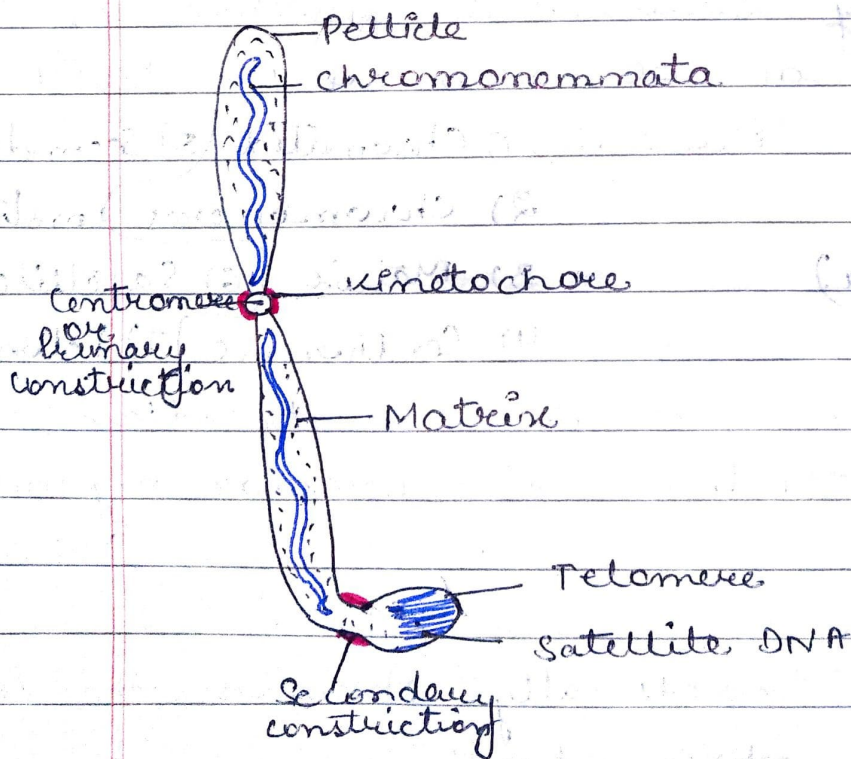 Pellicle
Chromonemmata
Kinetochore
Centromere
or
Primary
construction
Matrix
Telomere
Satellite DNA
Secondary
construction